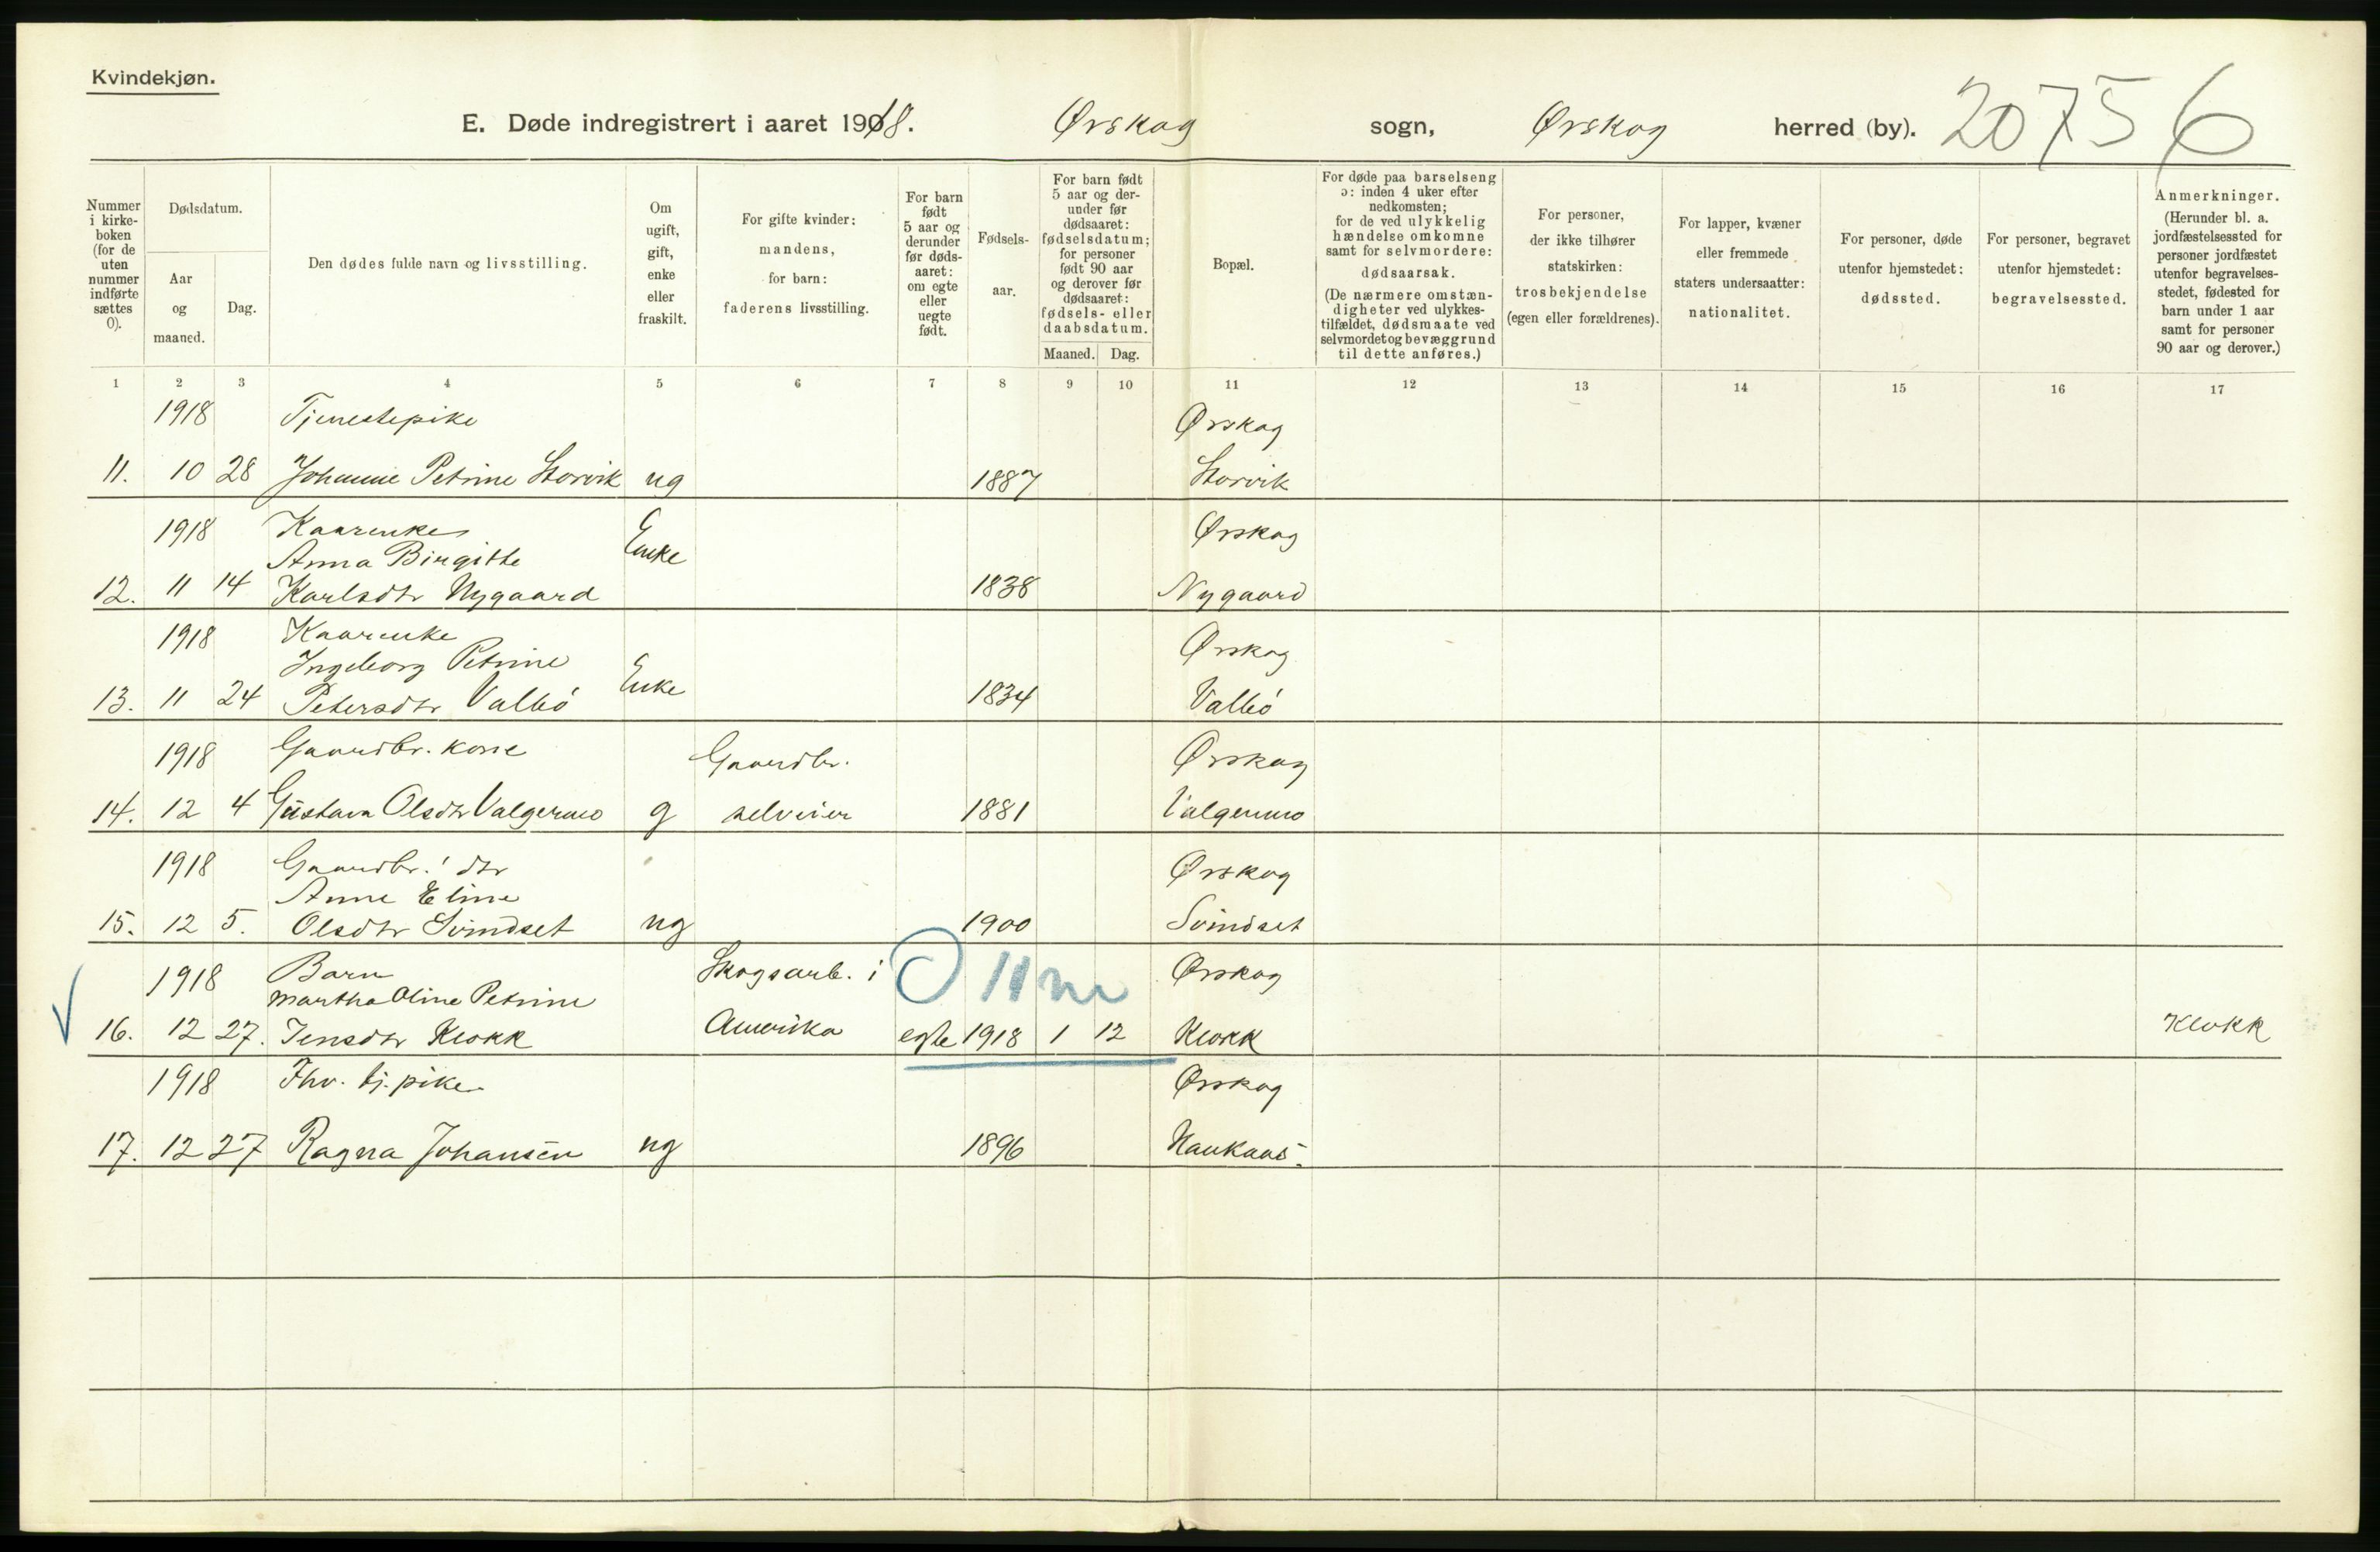 Kvindekjøn.
E. Døde indregistrert i aaret 1918. Ørskog sogn, Ørskog herred (by). 20756
Nummer i kirke-boken (for de uten nummer indførte sættes 0).
Dødsdatum.
Aar og maaned.
Dag.
Den dødes fulde navn og livsstilling.
Om ugift, gift, enke eller fraskilt.
For gifte kvinder: mandens, for barn: faderens livsstilling.
For barn født 5 aar og derunder før døds-aaret: om egte eller uegte født.
Fødsels-aar.
For barn født 5 aar og der-under før dødsaaret: fødselsdatum; for personer født 90 aar og derover før dødsaaret: fødsels- eller daabsdatum.
Maaned. Dag.
Bopæl.
For døde paa barselseng ɔ: inden 4 uker efter nedkomsten; for de ved ulykkelig hændelse omkomne samt for selvmordere: dødsaarsak. (De nærmere omstæn-digheter ved ulykkes-tilfældet, dødsmaate ved selvmordet og bevæggrund til dette anføres.)
For personer, der ikke tilhører statskirken: trosbekjendelse (egen eller forældrenes).
For lapper, kvæner eller fremmede staters undersaatter: nationalitet.
For personer, døde utenfor hjemstedet: dødssted.
For personer, begravet utenfor hjemstedet: begravelsessted.
Anmerkninger. (Herunder bl. a. jordfæstelsessted for personer jordfæstet utenfor begravelses-stedet, fødested for barn under 1 aar samt for personer 90 aar og derover.)
1 2 3 4 5 6 7 8 9 10 11 12 13 14 15 16 17
1918 Tjenestepike Ørskog
11. 10 28 Johanne Petrine Storvik ug 1887 Storvik
1918 Kaarenke Ørskog
Anna Birgitte Enke
12. 11 14 Karlsdtr Nygaard 1838 Nygaard
1918 Kaarenke Ørskog
Ingeborg Petrine
13. 11 24 Petersdtr Valbö Enke 1834 Valbö
1918 Gaardbr. kone Gaardbr. Ørskog
14. 12 4 Gustava Olsdtr Valgermo g selveier 1881 Valgermo
1918 Gaardbr. dtr Ørskog
Anne Eline
15. 12 5. Olsdtr Svindset ug 1900 Svindset
1918 Barn Skogsarb. i 11 m Ørskog
Martha Oline Petrine
16. 12 27. Jensdtr Klokk Amerika egte 1918 1 12 Klokk Klokk
1918 Fhv. tj. pike Ørskog
17. 12 27 Ragna Johansen ug 1896 Haukaas.